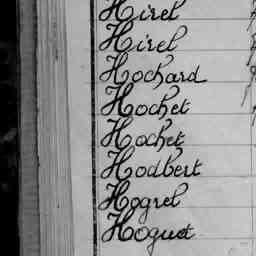 Hirel
Hirel
Hochard
Hochet
Hochet
Hodbert
Hogrel
Hoguet